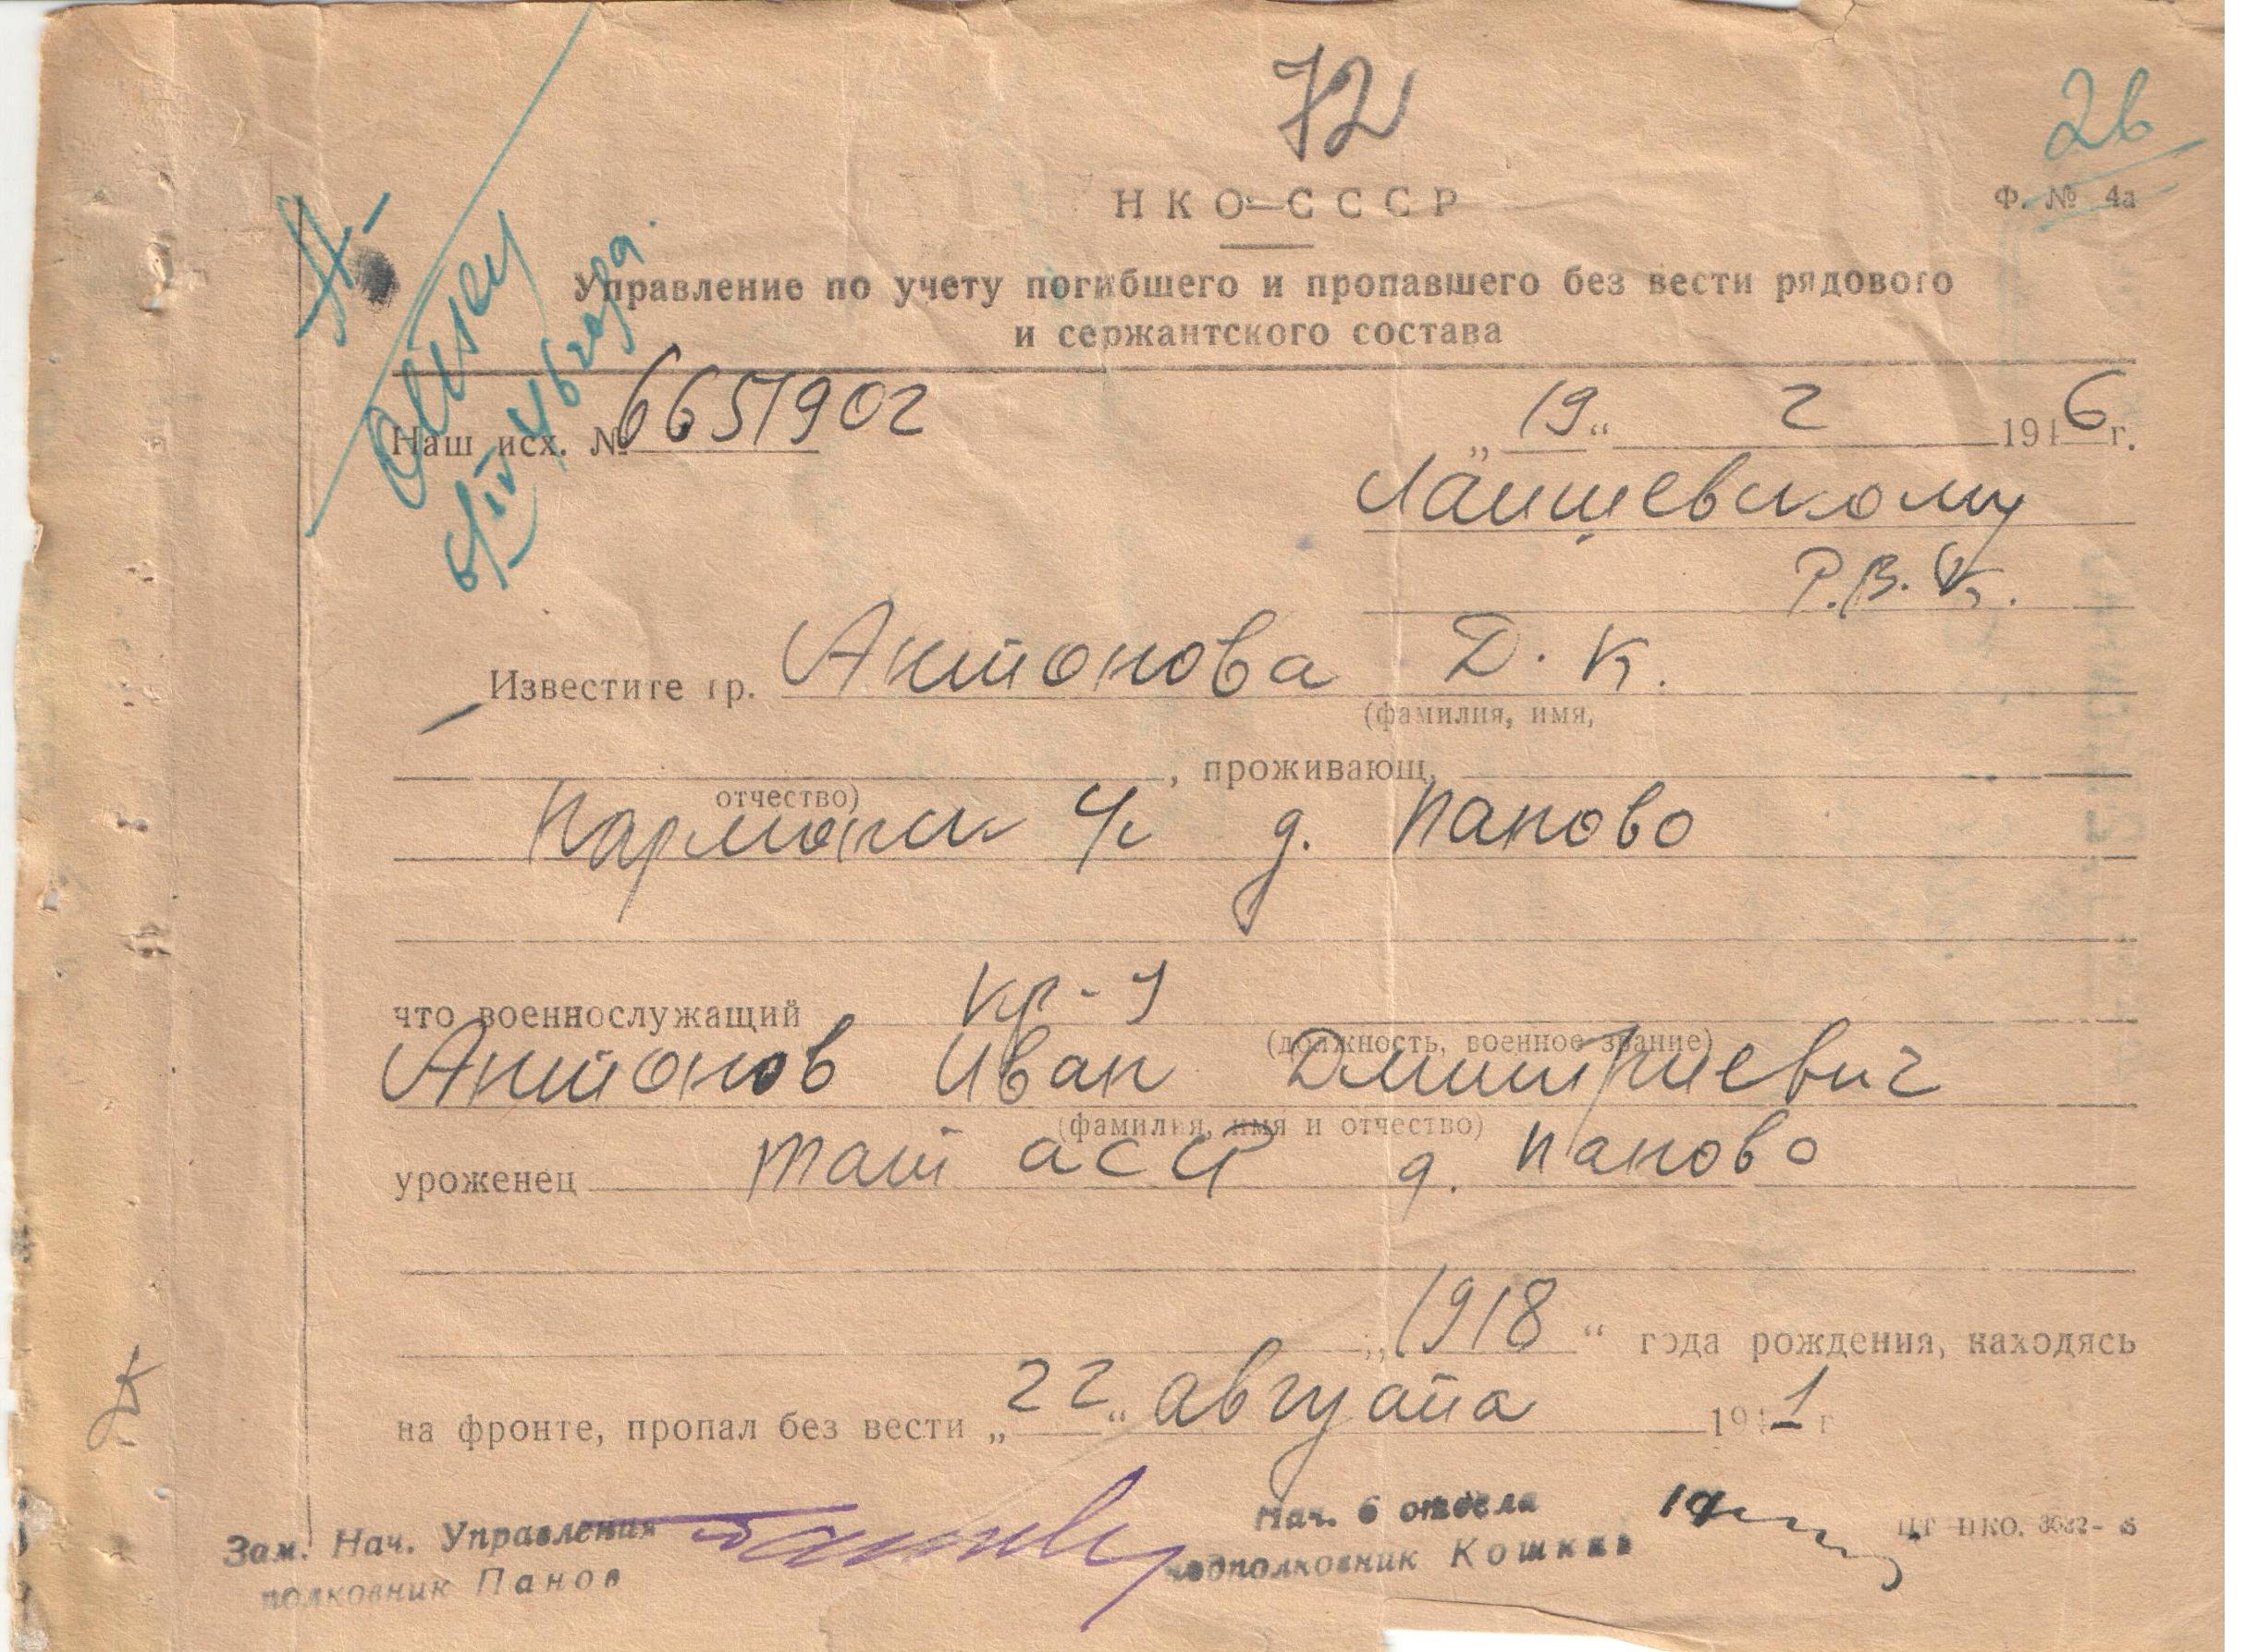 72
26
НКО СССР
Ф. № 4а
Управление по учету погибшего и пропавшего без вести рядового
и сержантского состава
Наш исх. № 6651902
„19“ 2 1946 г.
6/IV 46 года.
Лаишевскому
Р.В.К.
Известите гр. Антонова Д. К.
(фамилия, имя,
, проживающ.
отчество)
д. Паново
что военнослужащий кр-ц
(должность, военное звание)
Антонов Иван Дмитриевич
(фамилия, имя и отчество)
уроженец Тат АССР д. Паново
„1918“ года рождения, находясь
на фронте, пропал без вести „22“ августа 1941 г
Зам. Нач. Управления
полковник Панов
Нач. 6 отдела
подполковник Кошкин